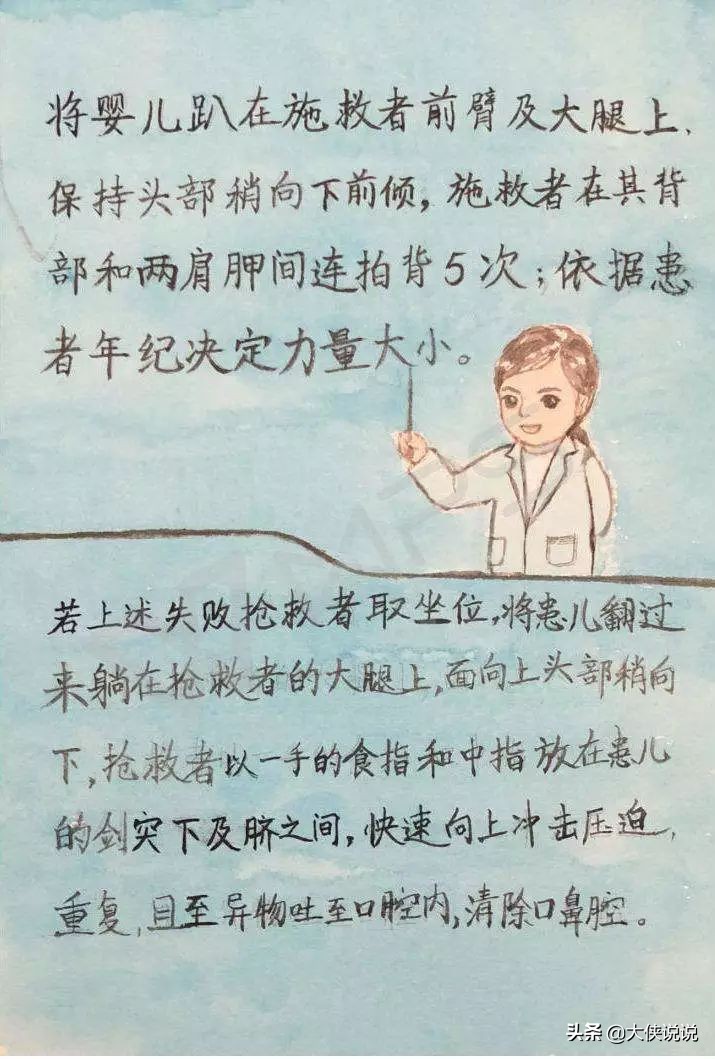 将婴儿趴在施救者前臂及大腿上，
保持头部稍向下前倾，施救者在其背
部和两肩胛间连拍背5次；依据患
者年纪决定力量大小。
若上述失败抢救者取坐位，将患儿翻过
来躺在抢救者的大腿上，面向上头部稍向
下，抢救者以一手的食指和中指放在患儿
的剑突下及脐之间，快速向上冲击压迫，
重复，且至异物吐至口腔内，清除口鼻腔。
头条 @大侠说说